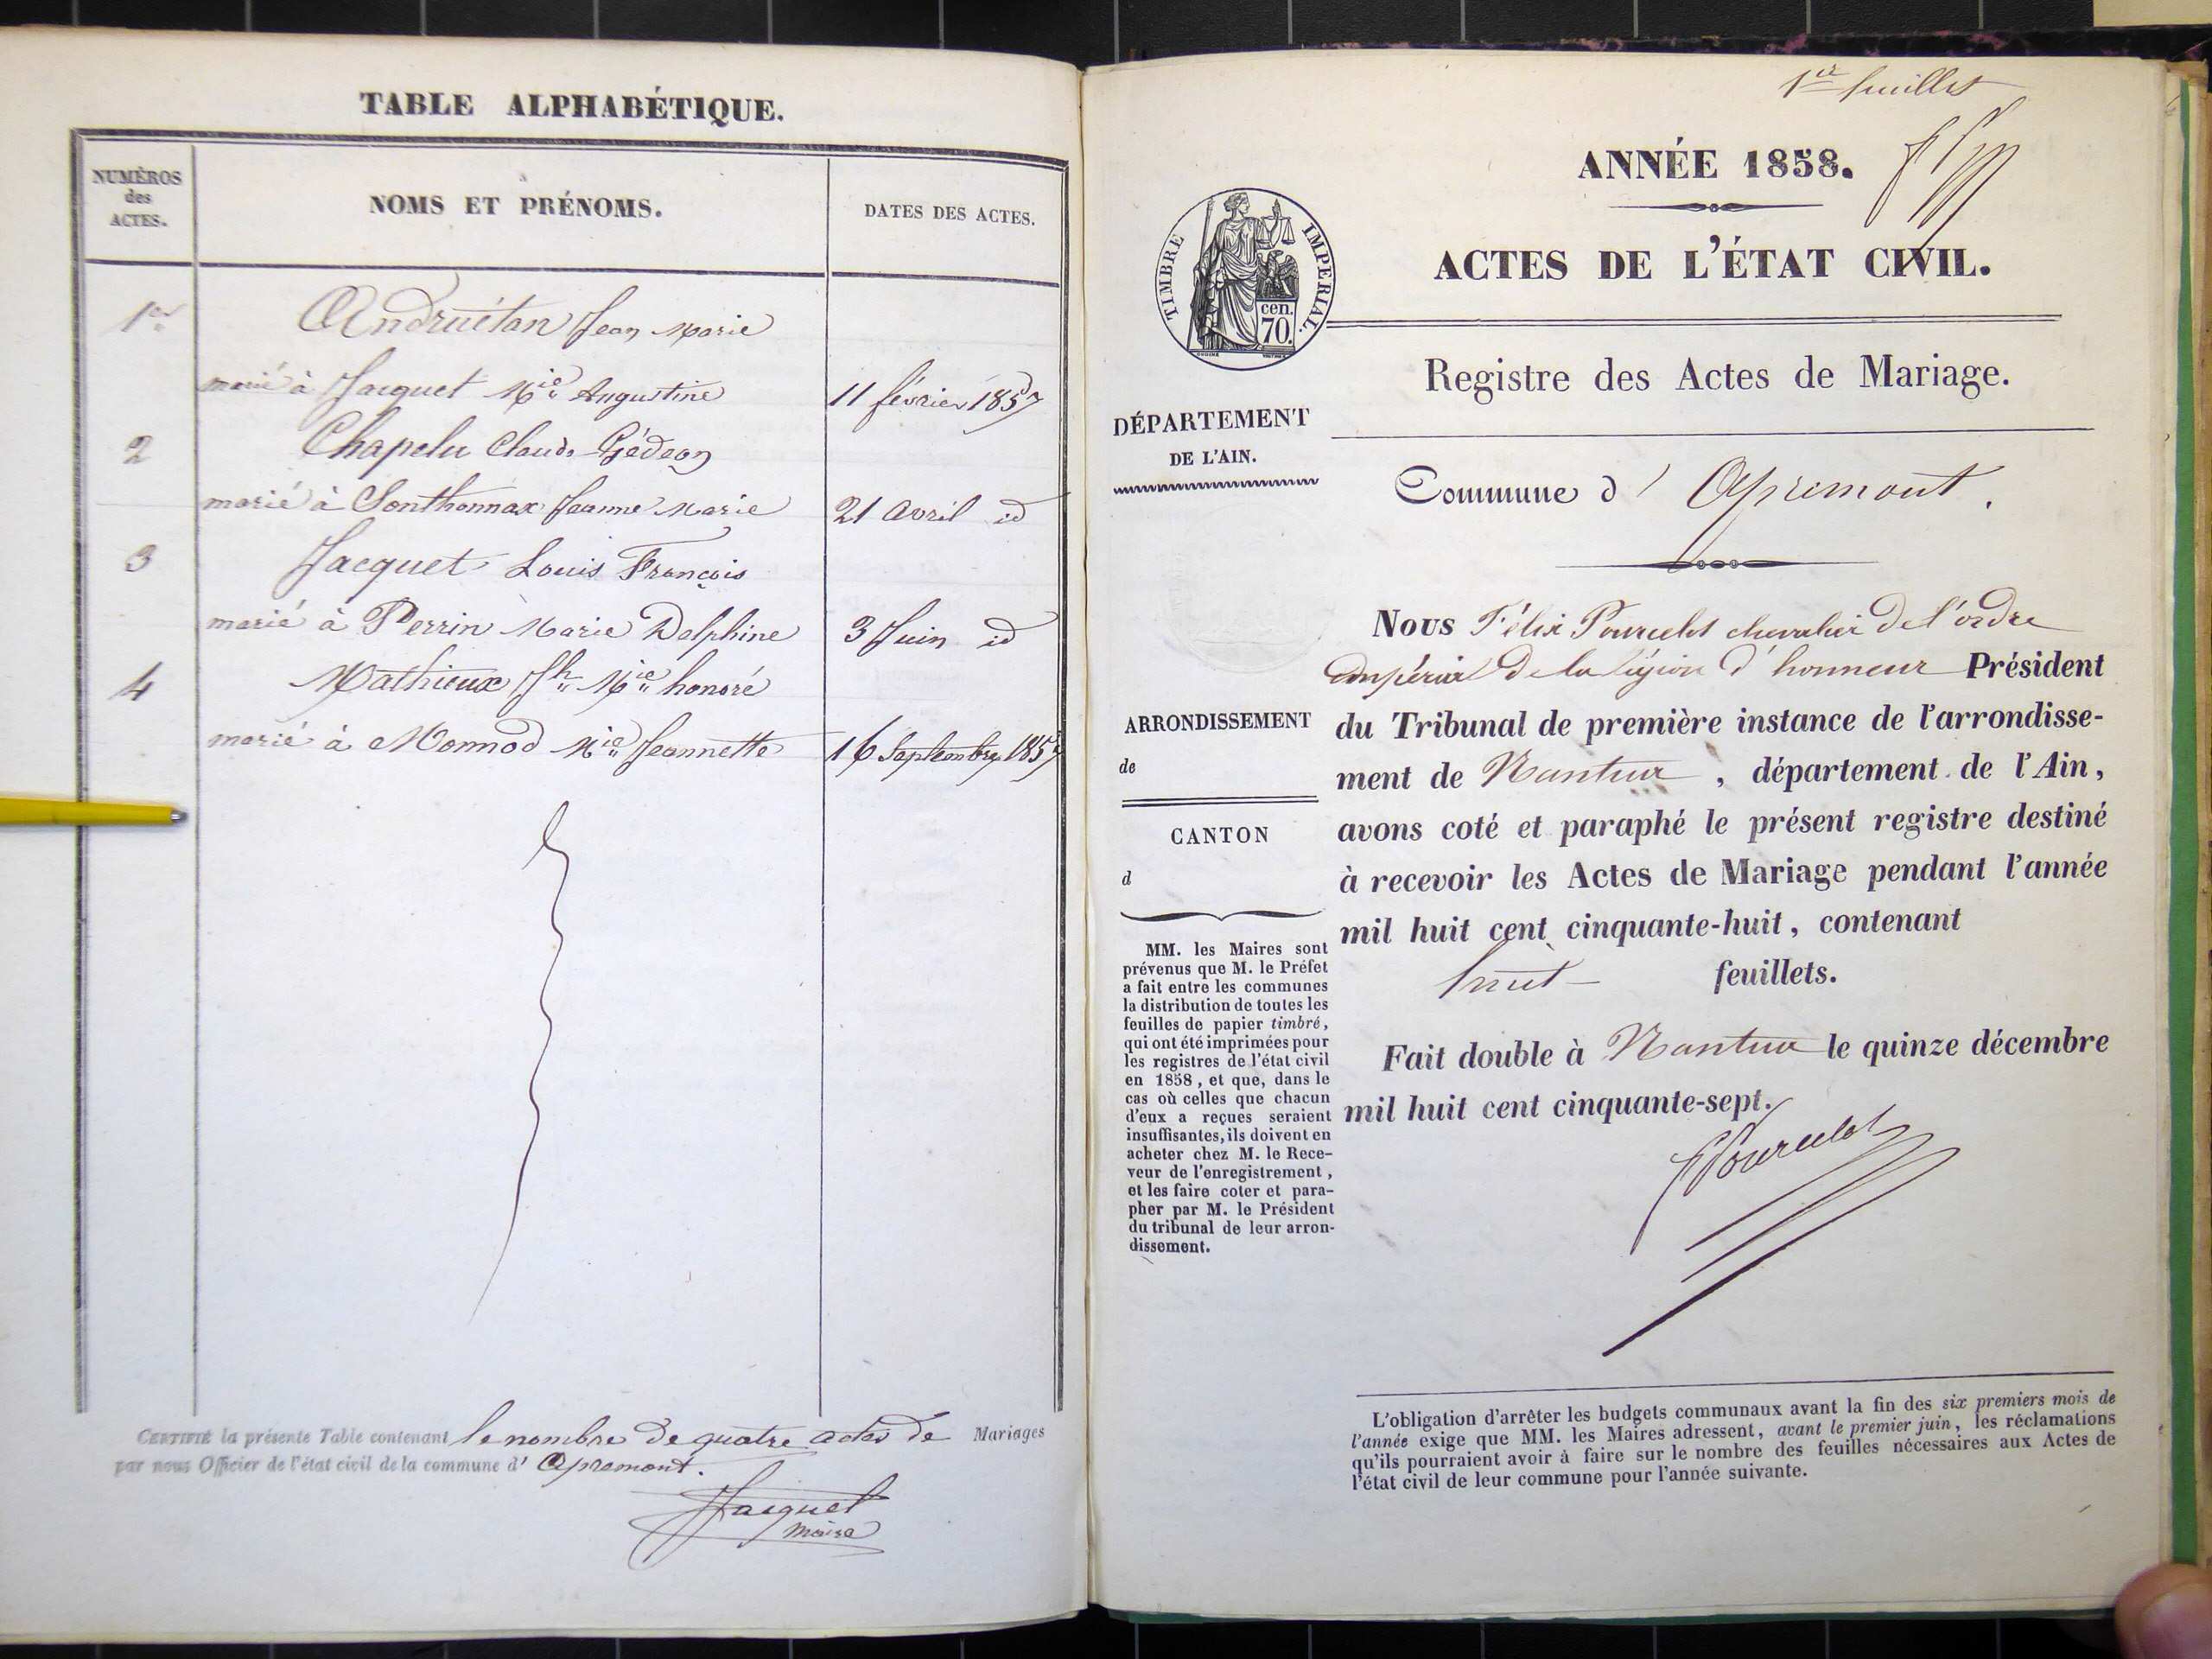 TABLE ALPHABÉTIQUE.
NUMÉROS des ACTES.
NOMS ET PRÉNOMS.
DATES DES ACTES.
1er Andruétan Jean Marie
marié à Jacquet Mie Augustine 11 février 1857
2 Chapelu Claude Gédéon
marié à Sonthonnax Jeanne Marie 21 avril id
3 Jacquet Louis François
marié à Perrin Marie Delphine 3 Juin id
4 Mathieux Jh Mie honoré
marié à Monnod Mie Jeannette 16 Septembre 1857
CERTIFIÉ la présente Table contenant le nombre de quatre actes de Mariages
par nous Officier de l'état civil de la commune d' Apremont.
Jacquet
Maire
1er feuillet
ANNÉE 1858.
ACTES DE L'ÉTAT CIVIL.
TIMBRE IMPERIAL.
cen.
70.
Registre des Actes de Mariage.
DÉPARTEMENT
DE L'AIN.
Commune d' Apremont.
Nous Félix Pourcelot chevalier de l'ordre
impérial de la légion d'honneur Président
ARRONDISSEMENT
de
du Tribunal de première instance de l'arrondisse-
ment de Nantua, département de l'Ain,
CANTON
d
avons coté et paraphé le présent registre destiné
à recevoir les Actes de Mariage pendant l'année
mil huit cent cinquante-huit, contenant
huit feuillets.
Fait double à Nantua le quinze décembre
mil huit cent cinquante-sept.
FPourcelot
MM. les Maires sont
prévenus que M. le Préfet
a fait entre les communes
la distribution de toutes les
feuilles de papier timbré,
qui ont été imprimées pour
les registres de l'état civil
en 1858, et que, dans le
cas où celles que chacun
d'eux a reçues seraient
insuffisantes, ils doivent en
acheter chez M. le Rece-
veur de l'enregistrement,
et les faire coter et para-
pher par M. le Président
du tribunal de leur arron-
dissement.
L'obligation d'arrêter les budgets communaux avant la fin des six premiers mois de
l'année exige que MM. les Maires adressent, avant le premier juin, les réclamations
qu'ils pourraient avoir à faire sur le nombre des feuilles nécessaires aux Actes de
l'état civil de leur commune pour l'année suivante.